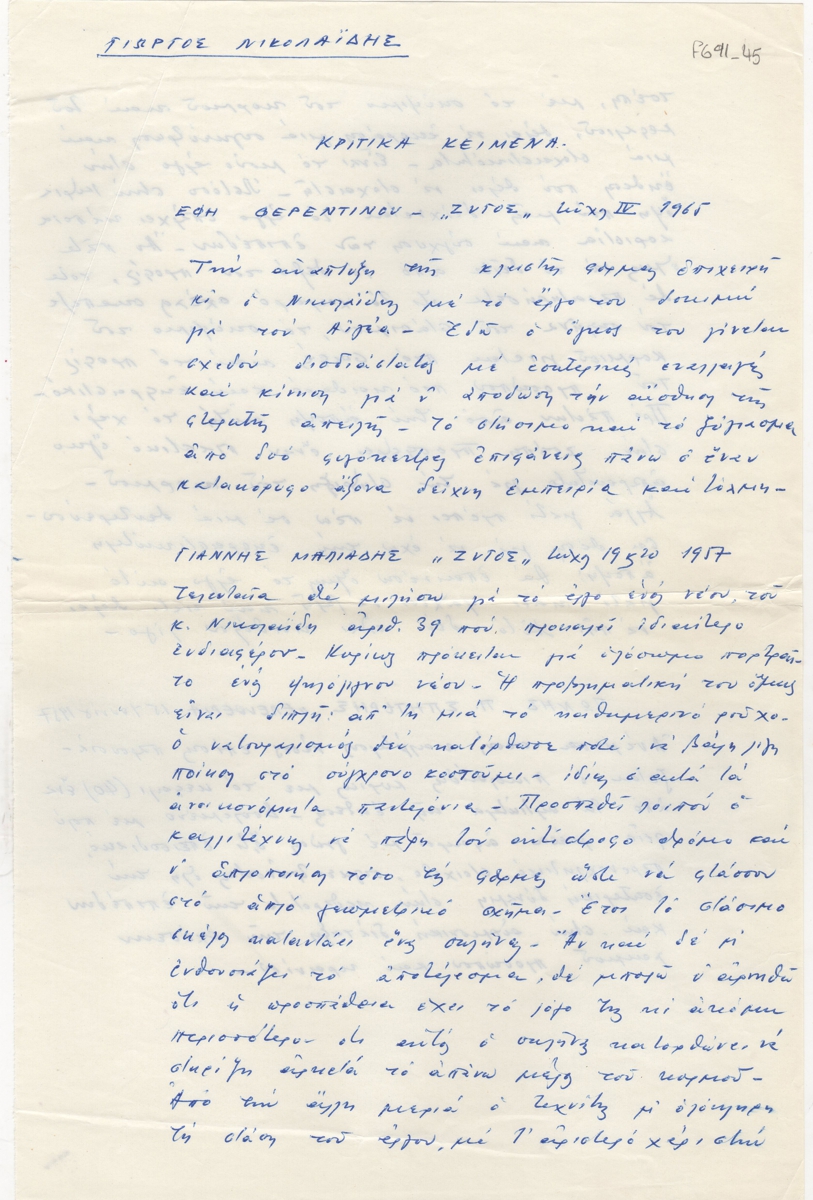 ΓΙΩΡΓΟΣ ΝΙΚΟΛΑΪΔΗΣ
F691_45
ΚΡΙΤΙΚΑ ΚΕΙΜΕΝΑ.
ΕΦΗ ΦΕΡΕΝΤΙΝΟΥ - "ΖΥΓΟΣ" τεύχη IV 1965
Τήν ἀνάπτυξη τῆς κλειστῆς φόρμας ἐπιχειρεῖ
κι ὁ Νικολαΐδης μέ τό ἔργο του δοκιμή
γιά τόν Αἰγέα - Ἐδῶ ὁ ὄγκος του γίνεται
σχεδόν δισδιάστατος μέ ἐσωτερικές εναλλαγές
καί κίνηση γιά ν' ἀποδώση τήν αἴσθηση τῆς
φτερωτῆς ἀπειλῆς - Τό στήσιμο καί τό ζύγιασμα
ἀπό δυό ἐπιφάνειες πάνω σ' ἕναν
κατακόρυφο ἄξονα δείχνη ἐμπειρία καί τόλμη -
ΓΙΑΝΝΗΣ ΜΑΛΙΑΔΗΣ "ΖΥΓΟΣ" τεύχη 19 1957
Τελευταῖα θά μιλήσω γιά τό ἔργο ἑνός νέου, τοῦ
κ. Νικολαΐδη ἀριθ. 39 πού προκαλεῖ ἰδιαίτερο
ἐνδιαφέρον - Κυρίως πρόκειται γιά ὁλόσωμο πορτραῖ-
το ἑνός ψηλόλιγνου νέου - Ἡ προβληματική του ὅμως
εἶναι διπλή: ἀπ' τη μιά τό καθημερινό ροῦχο -
ὁ νατουραλισμός δέν κατόρθωσε ποτέ νά βάλη λίγη
ποίηση στό σύγχρονο κοστούμι - ἰδίως σ' αὐτά τά
ἀνοικονόμητα παντελόνια - Προσπαθεῖ λοιπόν ὁ
καλλιτέχνης νά πάρη τόν ἀντίστροφο δρόμο καί
ν' ἁπλοποιήση τόσο τίς φόρμες ὥστε νά φτάσουν
στό ἁπλό γεωμετρικό σχῆμα - Ἔτσι τό στάσιμο
σκέλος καταντάει ἕνας σωλήνας - Ἄν καί δέ μ'
ἐνθουσιάζει τό ἀποτέλεσμα, δέ μπορῶ ν' ἀρνηθῶ
ὅτι ἡ προσπάθεια έχει τό λόγο της κι ἀκόμα
περισσότερο - ὅτι αὐτός ὁ σωλήνας κατορθώνει νά
στηρίζη ἀρκετά τό ἀπάνω μέρος τοῦ κορμοῦ -
Ἀπό τήν ἄλλη μεριά ὁ τεχνίτης μ' ὁλόκληρη
τή στάση τοῦ ἔργου, μέ τ' ἀριστερό χέρι στήν